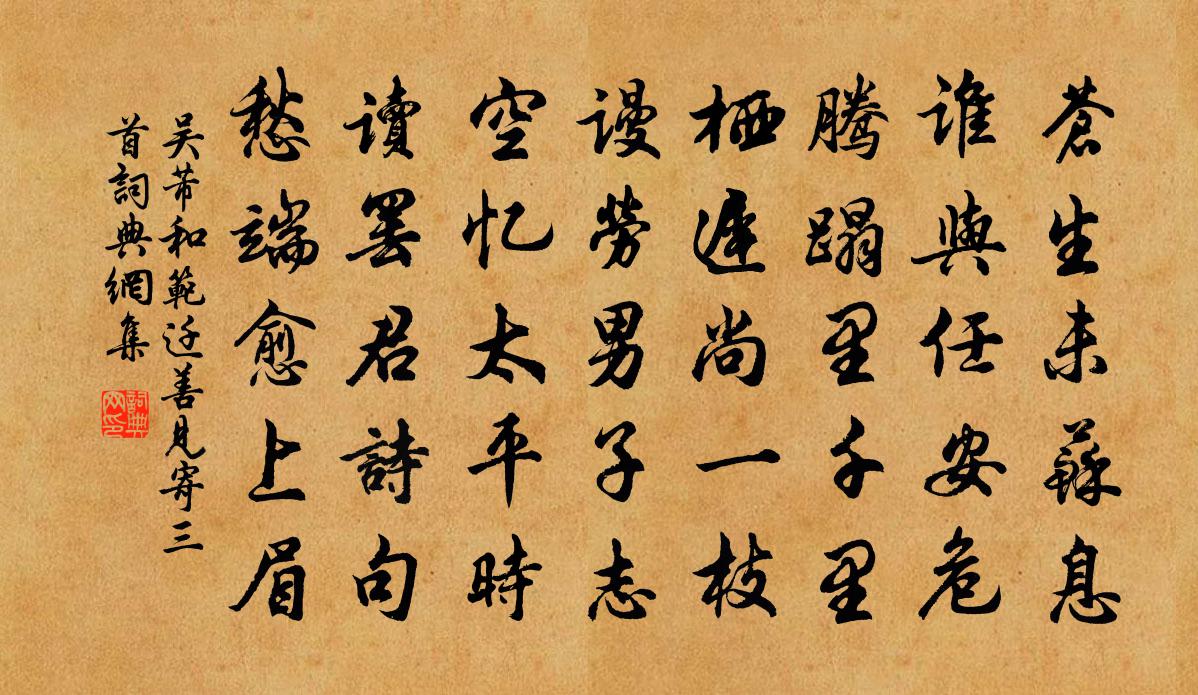 蒼生未蘇息
誰與任安危
騰蹋里千里
栖遲尚一枝
謾勞男子志
空忆太平時
讀罢君詩句
愁端愈上眉
吴芾和範迁善見寄三
首詞典網集
詞典
网印